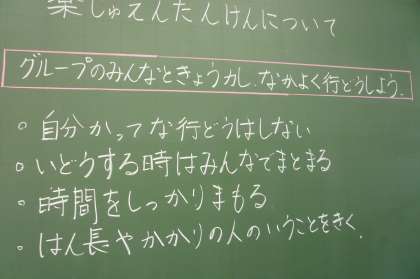 楽しゅえんたんけんについて
グループのみんなときょうカし、なかよく行どうしよう。
○ 自分かってな行どうはしない
○ いどうする時はみんなでまとまる
○ 時間をしっかりまもる
○ はん長やかかりの人のいうことをきく。